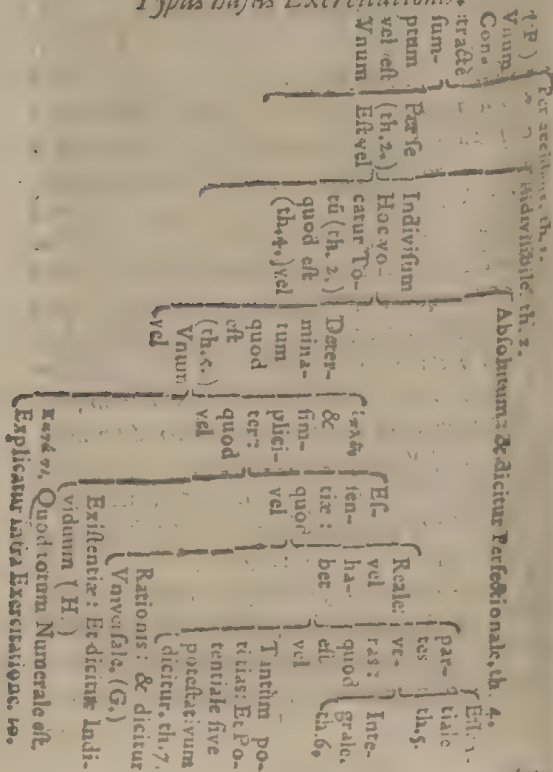 Typus hujus Exercitationis.
(F)
Vnum
Con-
tractè
ſum-
ptum
vel eſt
Vnum
Per accidens. th. 1.
Perſe
(th. 2.)
Eſt vel
Indiviſibile. th. 2.
Indiviſum
Hoc vo-
catur To-
tū (th. 2.)
quod eſt
(th. 4.) vel
Abſolutum: & dicitur Perfectionale, th 4.
Deter-
mina-
tum
quod
eſt
(th. 5.)
Vnum
vel
&
ſim-
plici-
ter:
quod
vel
Eſ-
ſen-
tiæ:
quod
vel
Reale:
vel
ha-
bet
par-
tes
vt-
ras:
quod
eſt
vel
tiale
th. 5.
Inte-
grale.
th. 6.
Tantùm po-
titias: Et Po-
tentiale ſive
poteſtativum
dicitur. th. 7.
Rationis: & dicitur
Vniverſale. (G.)
Exiſtentiæ: Et dicitur Indi-
viduum (H.)
κατά τι. Quod totum Numerale eſt.
Explicatur infra Exercitatione. 10.